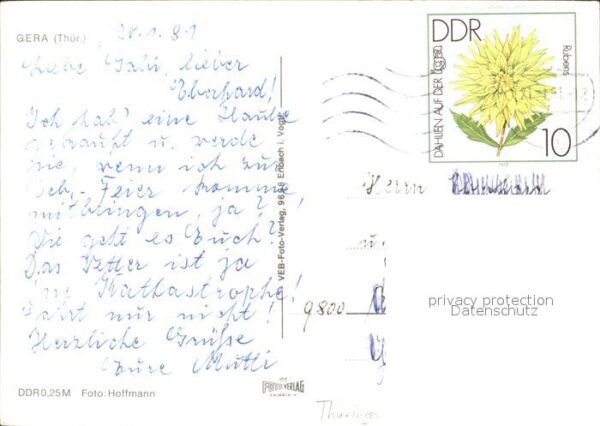 GERA (Thür.) 20.1.81
Liebe Gabi, lieber
Eberhard!
Ich hab' eine Haube
gekauft u. werde
sie, wenn ich zur
Feier komme,
mitbringen, ja?
Wie geht es Euch?
Das Wetter ist ja
'ne Kathastrophe!
Friert nur nicht!
Herzliche Grüße
Eure Mutti
DDR 0,25 M Foto: Hoffmann
VEB-Foto-Verlag, 9654 Erlbach i. Vogtl.
VEB
FOTO-VERLAG
ERLBACH/V.
DDR
DAHLIEN AUF DER
Rubens
10
1979
Herrn
u.
9800
privacy protection
Datenschutz